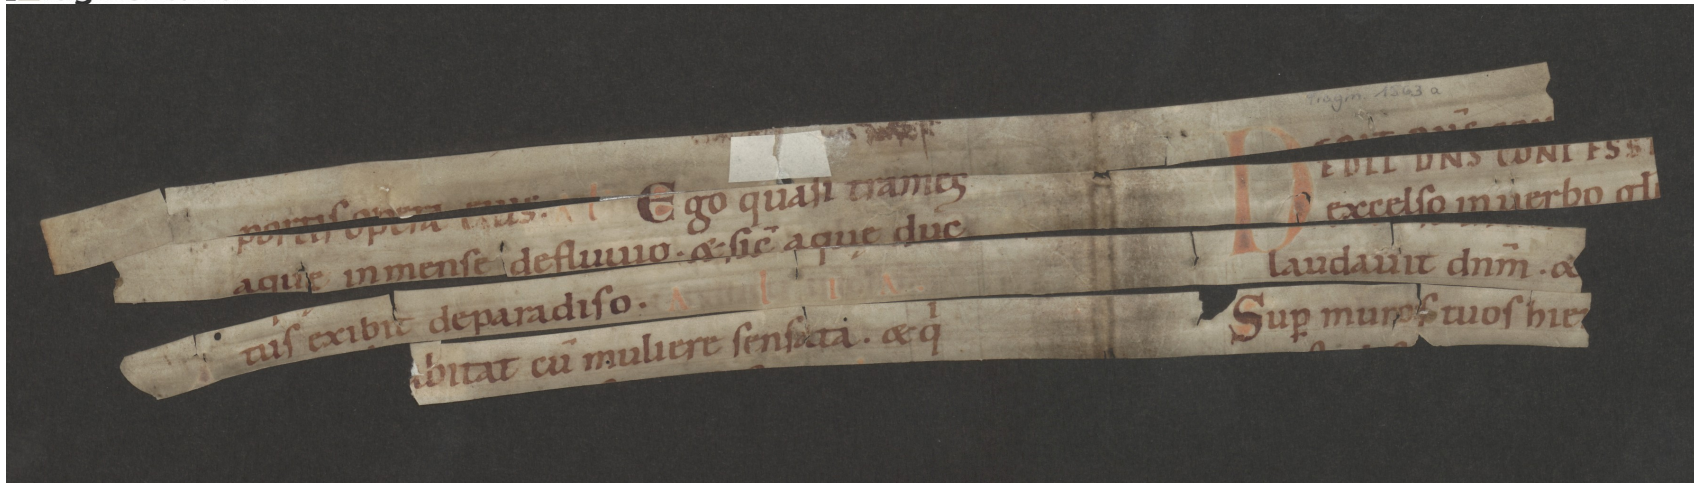 Fragm. 1563 a
portis opera eius. Ego quasi trames
aquę inmense defluuio. & sic̄ aquę duc
tus exibit deparadiso.
bitat cū muliere sensata. & q
DEDIT DN̄S CONFESS
excelso inuerbo gl
laudauit dn̄m. &
Sup muros tuos hie